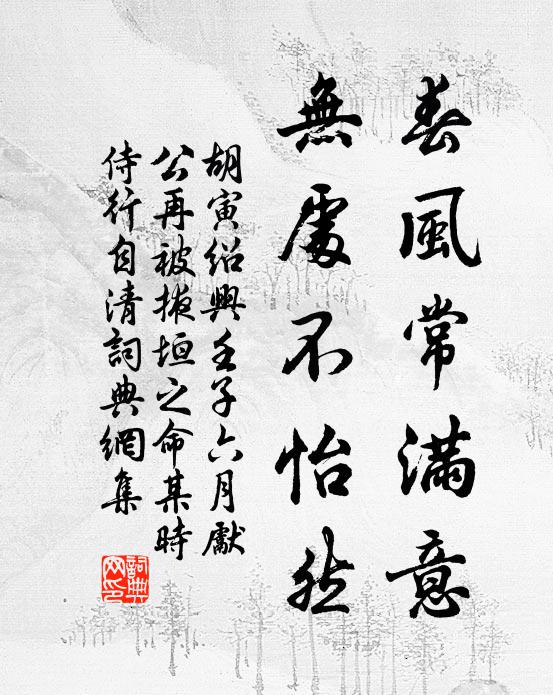 春風常滿意
無處不怡然
胡寅紹興壬子六月獻
公再被掖垣之命某時
侍行自清詞典網集
詞典
网印